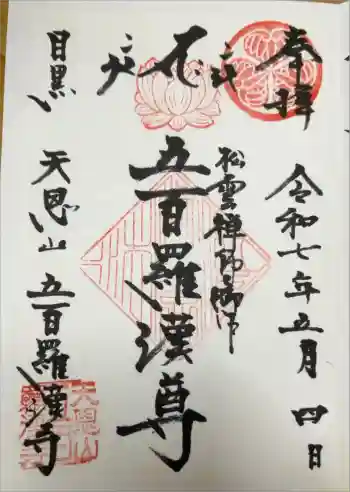 奉拝
令和七年五月四日
松雲禅師御作
五百羅漢尊
目黒
天恩山 五百羅漢寺